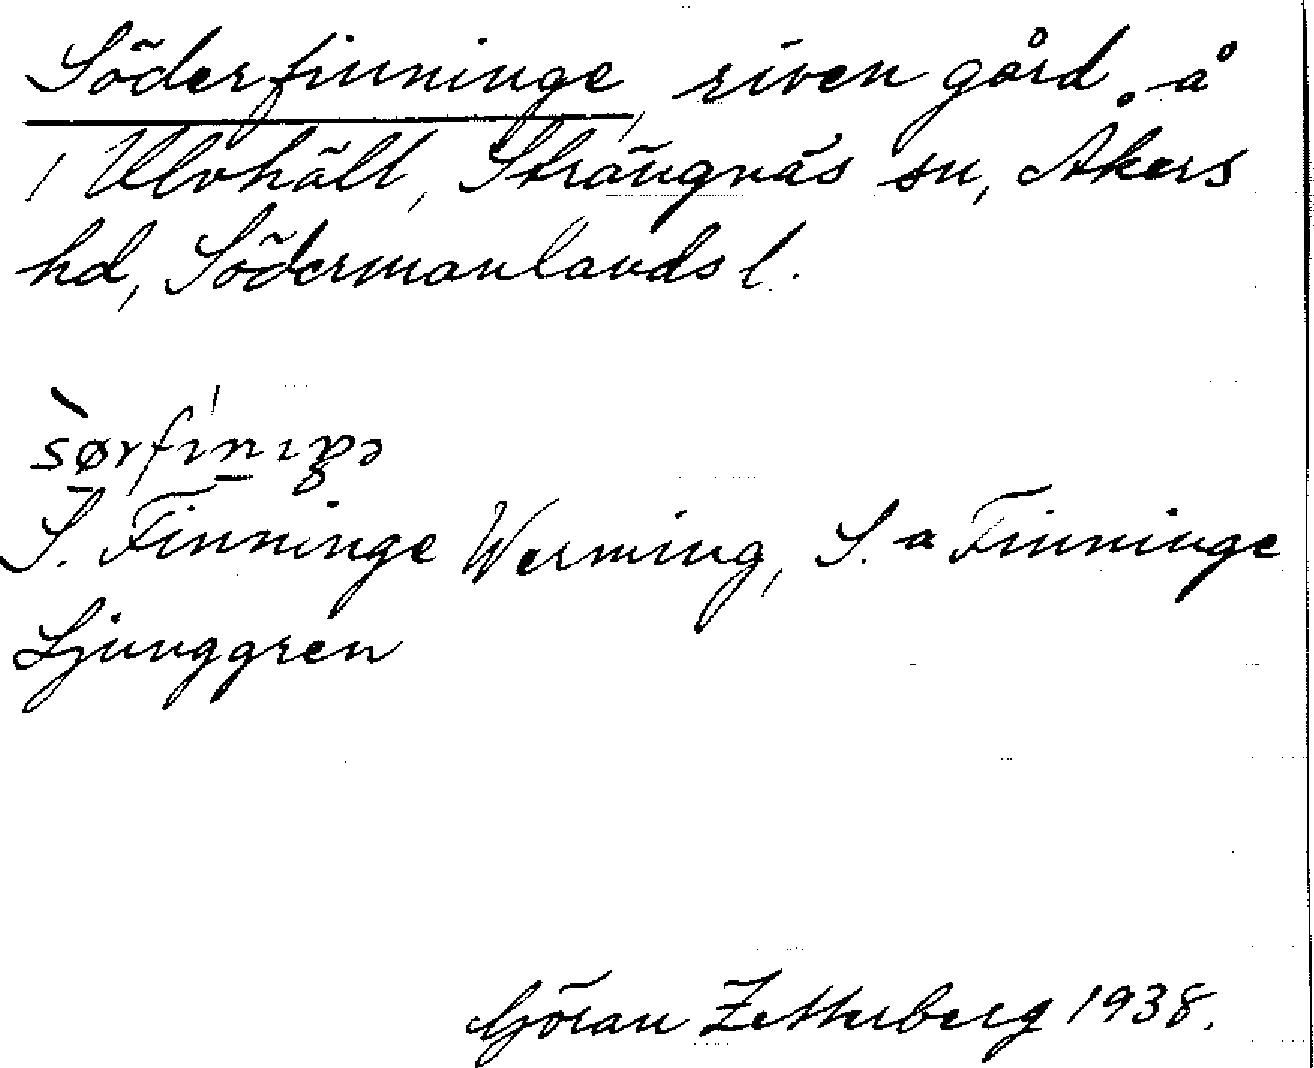 Söderfinninge, riven gård å
Ulvhäll, Strängnäs sn, Åkers
hd, Södermanlands l.
S. Finninge Werming, S.a Finninge
Ljunggren
Göran Zetterberg 1938.